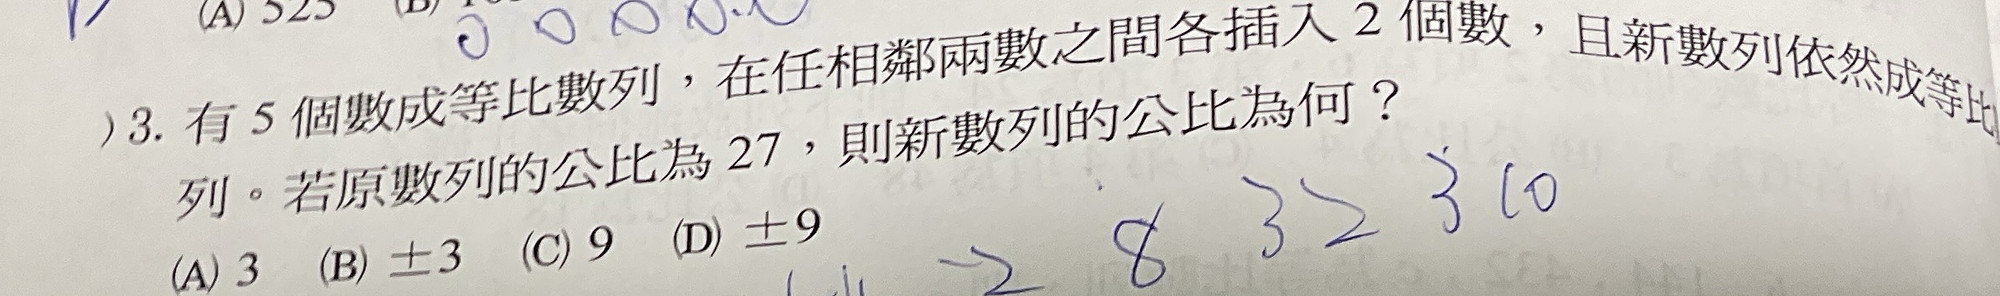 (A) 525 (B)
)3. 有 5 個數成等比數列，在任相鄰兩數之間各插入 2 個數，且新數列依然成等比
列。若原數列的公比為 27，則新數列的公比為何？
(A) 3 (B) ±3 (C) 9 (D) ±9
2 8 32